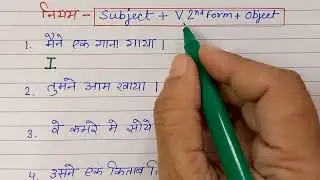 नियम - Subject + V 2nd form + Object
1. मैंने एक गाना गाया ।
I
2. तुमने आम खाया ।
3. वे कमरे मे सोये
4. उसने एक किताब